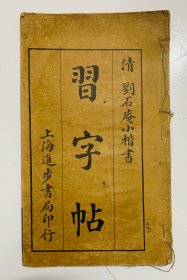 清 劉石庵小楷書
習字帖
上海進步書局印行